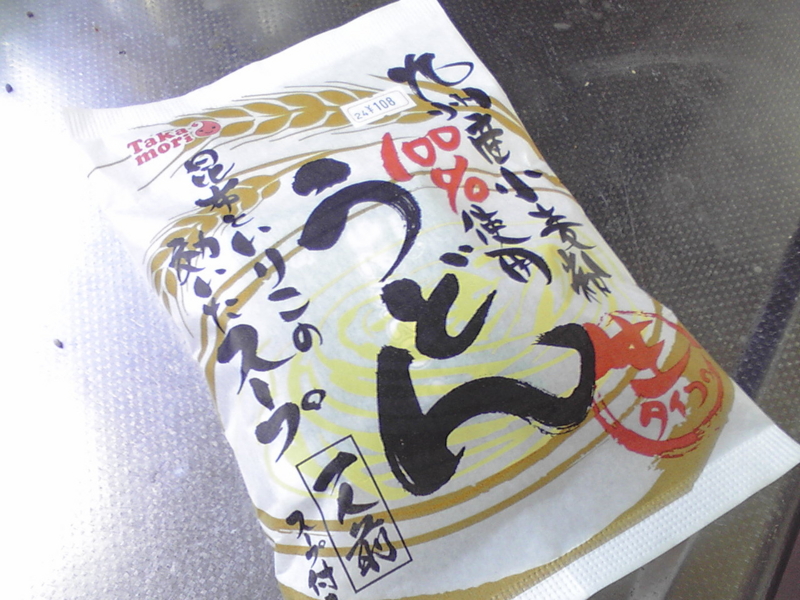 九州産小麦粉
100%使用
¥108
うどん
Taka
mori
昆布といりこの
効いたスープ
生
タイプ
一人前
スープ付